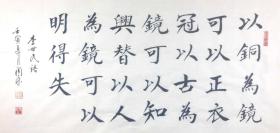 以銅為鏡
可以正衣
冠以古為
鏡可以知
興替以人
為鏡可以
明得失
李世民語
壬寅年